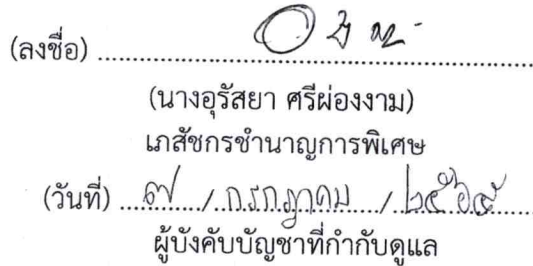 (ลงชื่อ) ..........................................................
(นางอุรัสยา ศรีผ่องงาม)
เภสัชกรชำนาญการพิเศษ
(วันที่) ๗ / กรกฎาคม / ๒๕๖๕
ผู้บังคับบัญชาที่กำกับดูแล